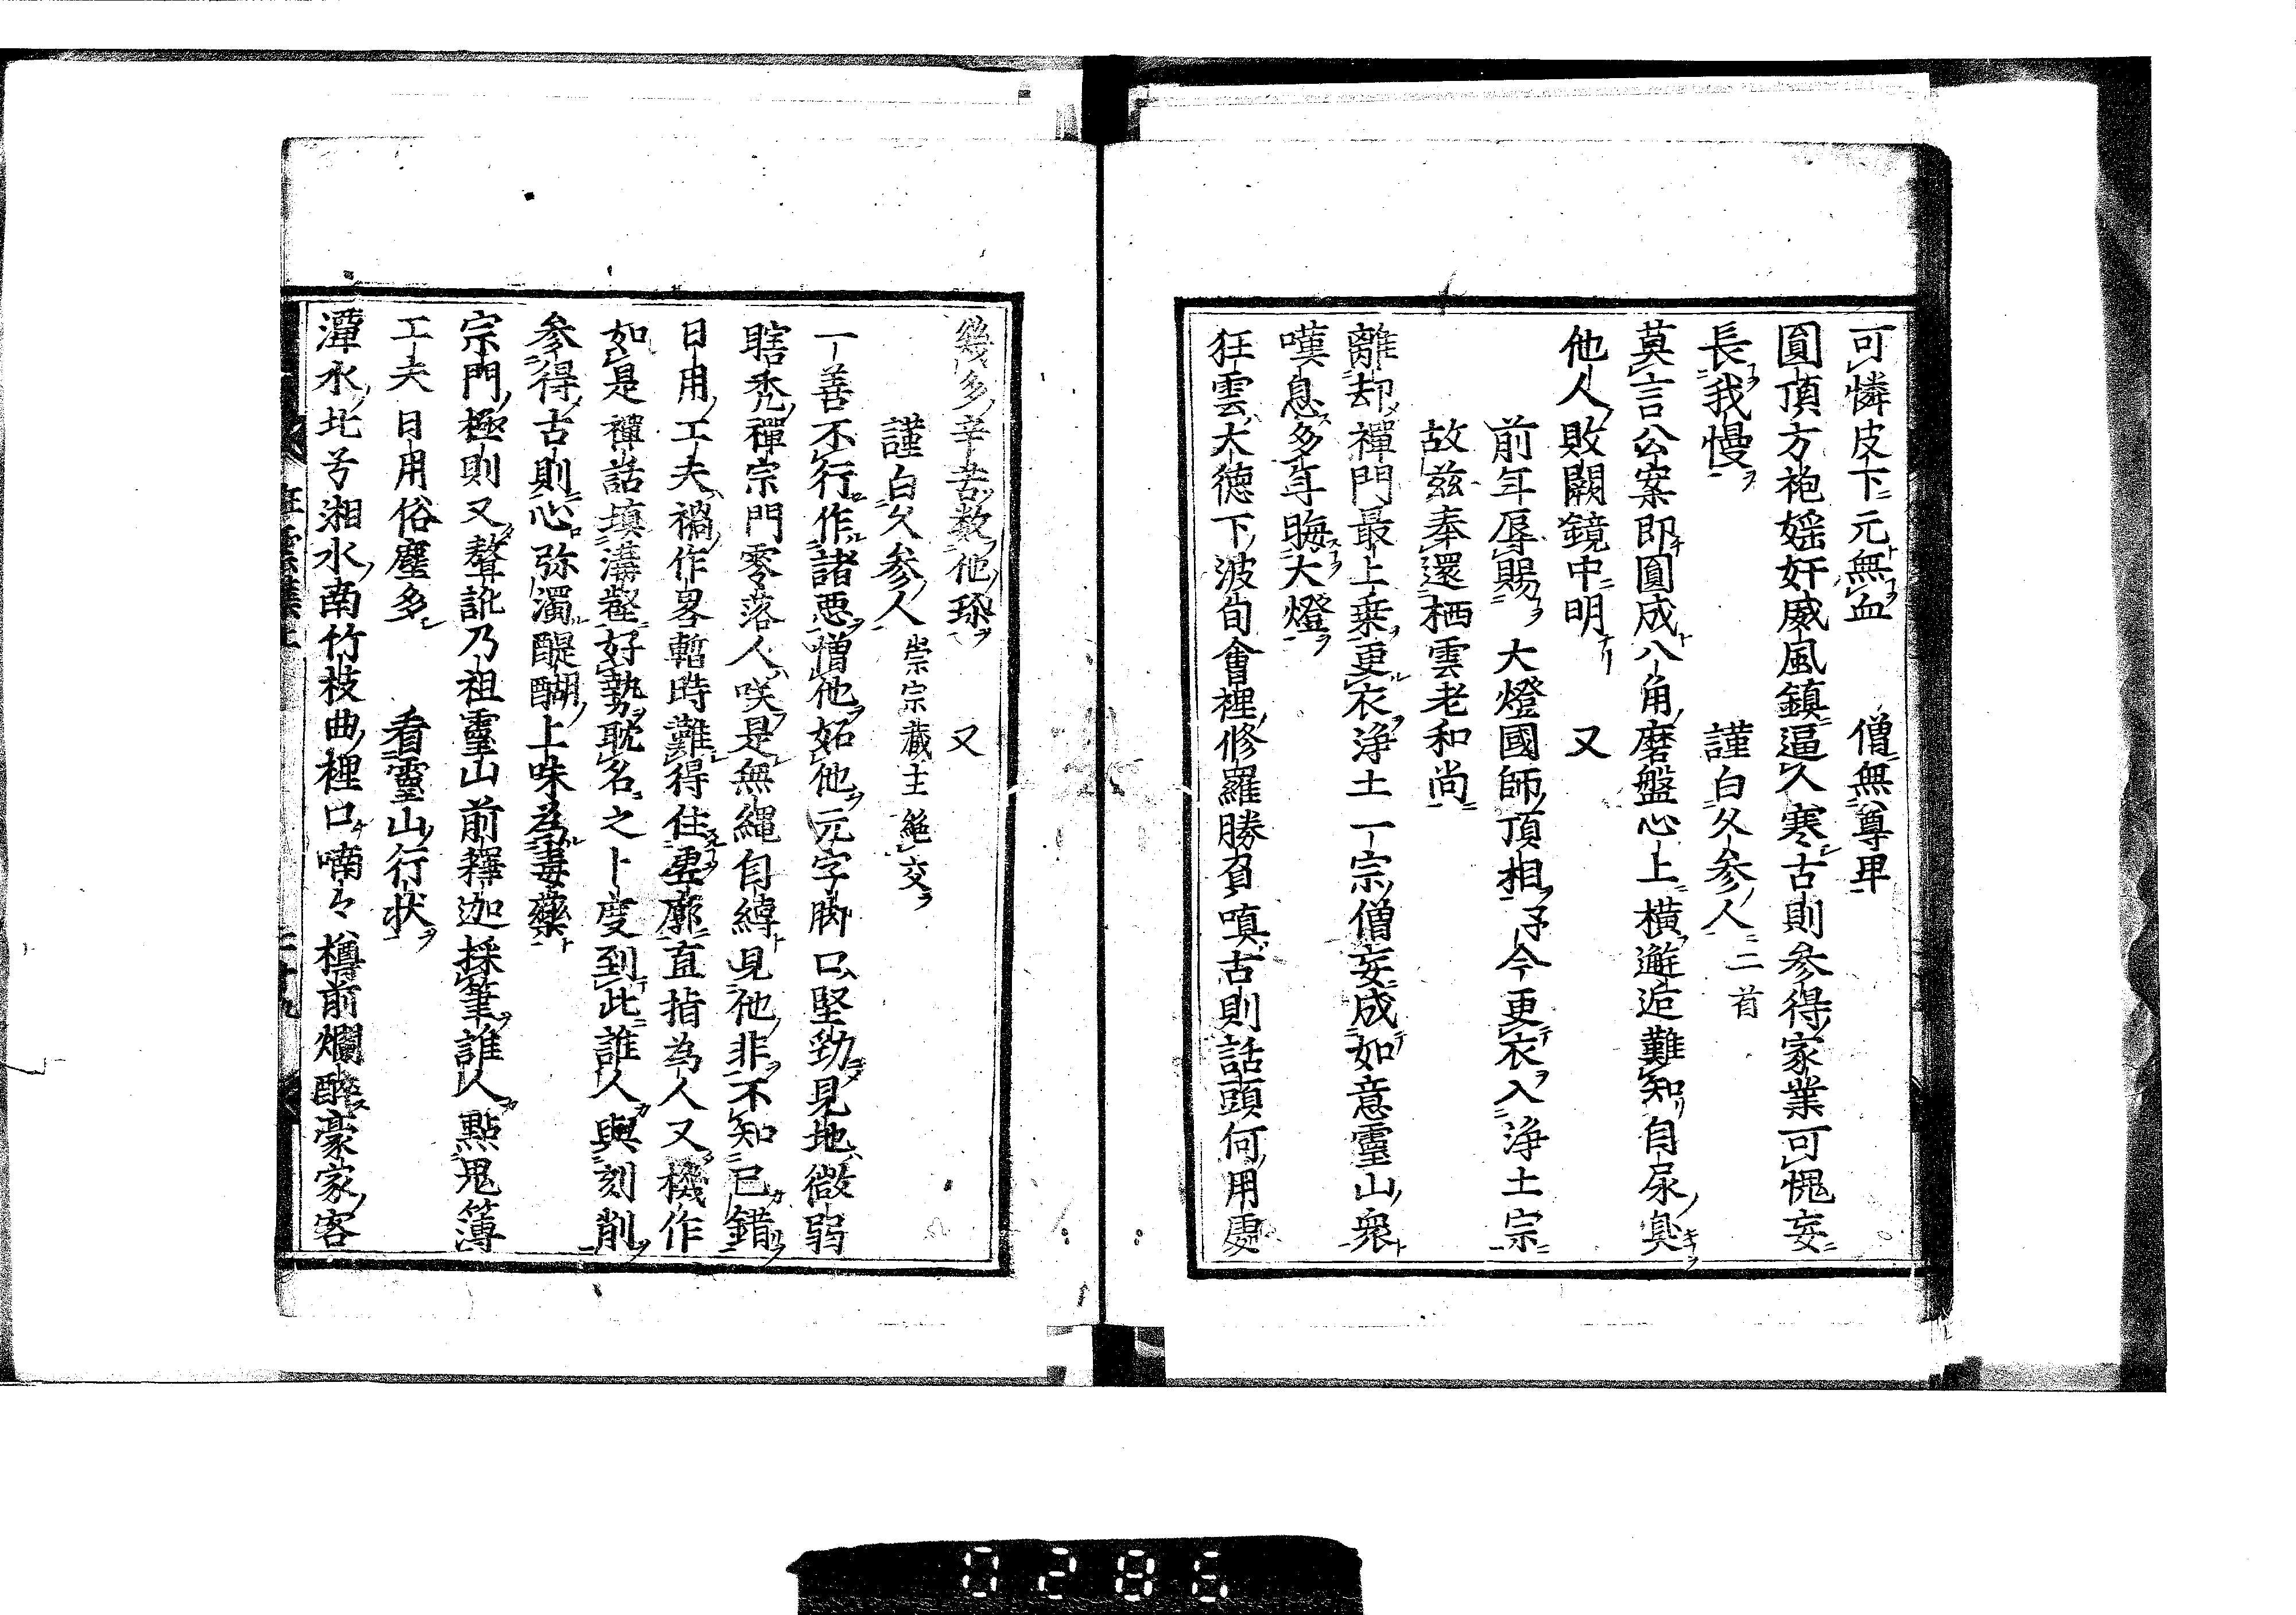 可憐皮下元無血　僧無尊卑
圓頂方袍婬奸威風鎮逼人寒古則參得家業可愧妄
長我慢　謹白久參人二首
莫言公案即圓成八角磨盤心上橫邂逅難知自屎臭
他人敗闕鏡中明　又
前年辱賜　大燈國師頂相予今更衣入淨土宗
故茲奉還栖雲老和尚
離却禪門最上乘更衣淨土一宗僧妄成如意靈山眾
嘆息多年晦大燈
狂雲大德下波旬會裡修羅勝負嗔古則話頭何用處
幾多辛苦數他珎　又
謹白久參人　崇宗藏主絶交
一善不行作諸惡憎他妬他元字脚口堅勁見地微弱
瞎禿禪宗門零落人咲是無繩自縛見他非不知己錯
日用工夫禍作畧暫時難得住虛廓直指為人又機作
如是禪話填溝壑好勢耽名之卜度到此誰人與刻削
參得古則心弥濁醍醐上味為毒藥
宗門極則又聱訛乃祖靈山前釋迦採筆誰人點鬼簿
工夫日用俗塵多　看靈山行狀
潭水北兮湘水南竹枝曲裡口喃々樽前爛醉豪家客
狂雲集上
二十九